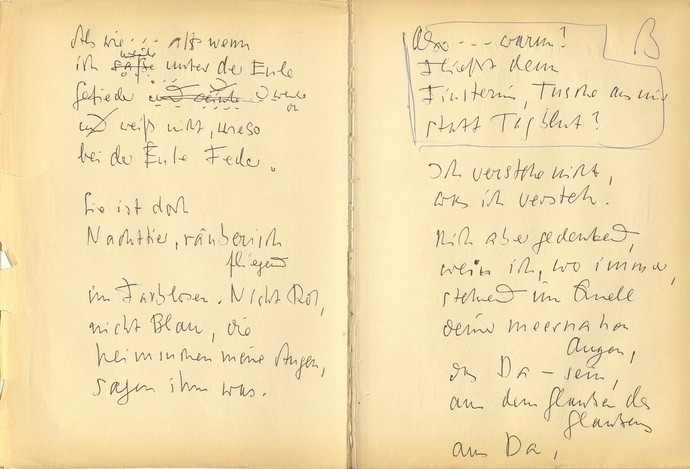 Als wie --- als wenn
ich weile unter der Eule
Gefieder
und weiß nicht, wieso
bei der Eule Feder.
Sie ist doch
Nachttier, räuberisch
fliegend
im Farblosen. Nicht Rot,
nicht Blau, die
heimsuchen meine Augen,
sagen ihm was.
B
Also --- warum?
Fließt denn
Finsternis, Tusche aus mir
statt Tagblut?
Ich verstehe nicht,
was ich versteh.
Dich aber gedenkend,
weiß ich, wo immer,
stehend im Quell
deiner meernahen
Augen,
das Da-sein,
aus dem Glauben des
Glaubens
ans Da,